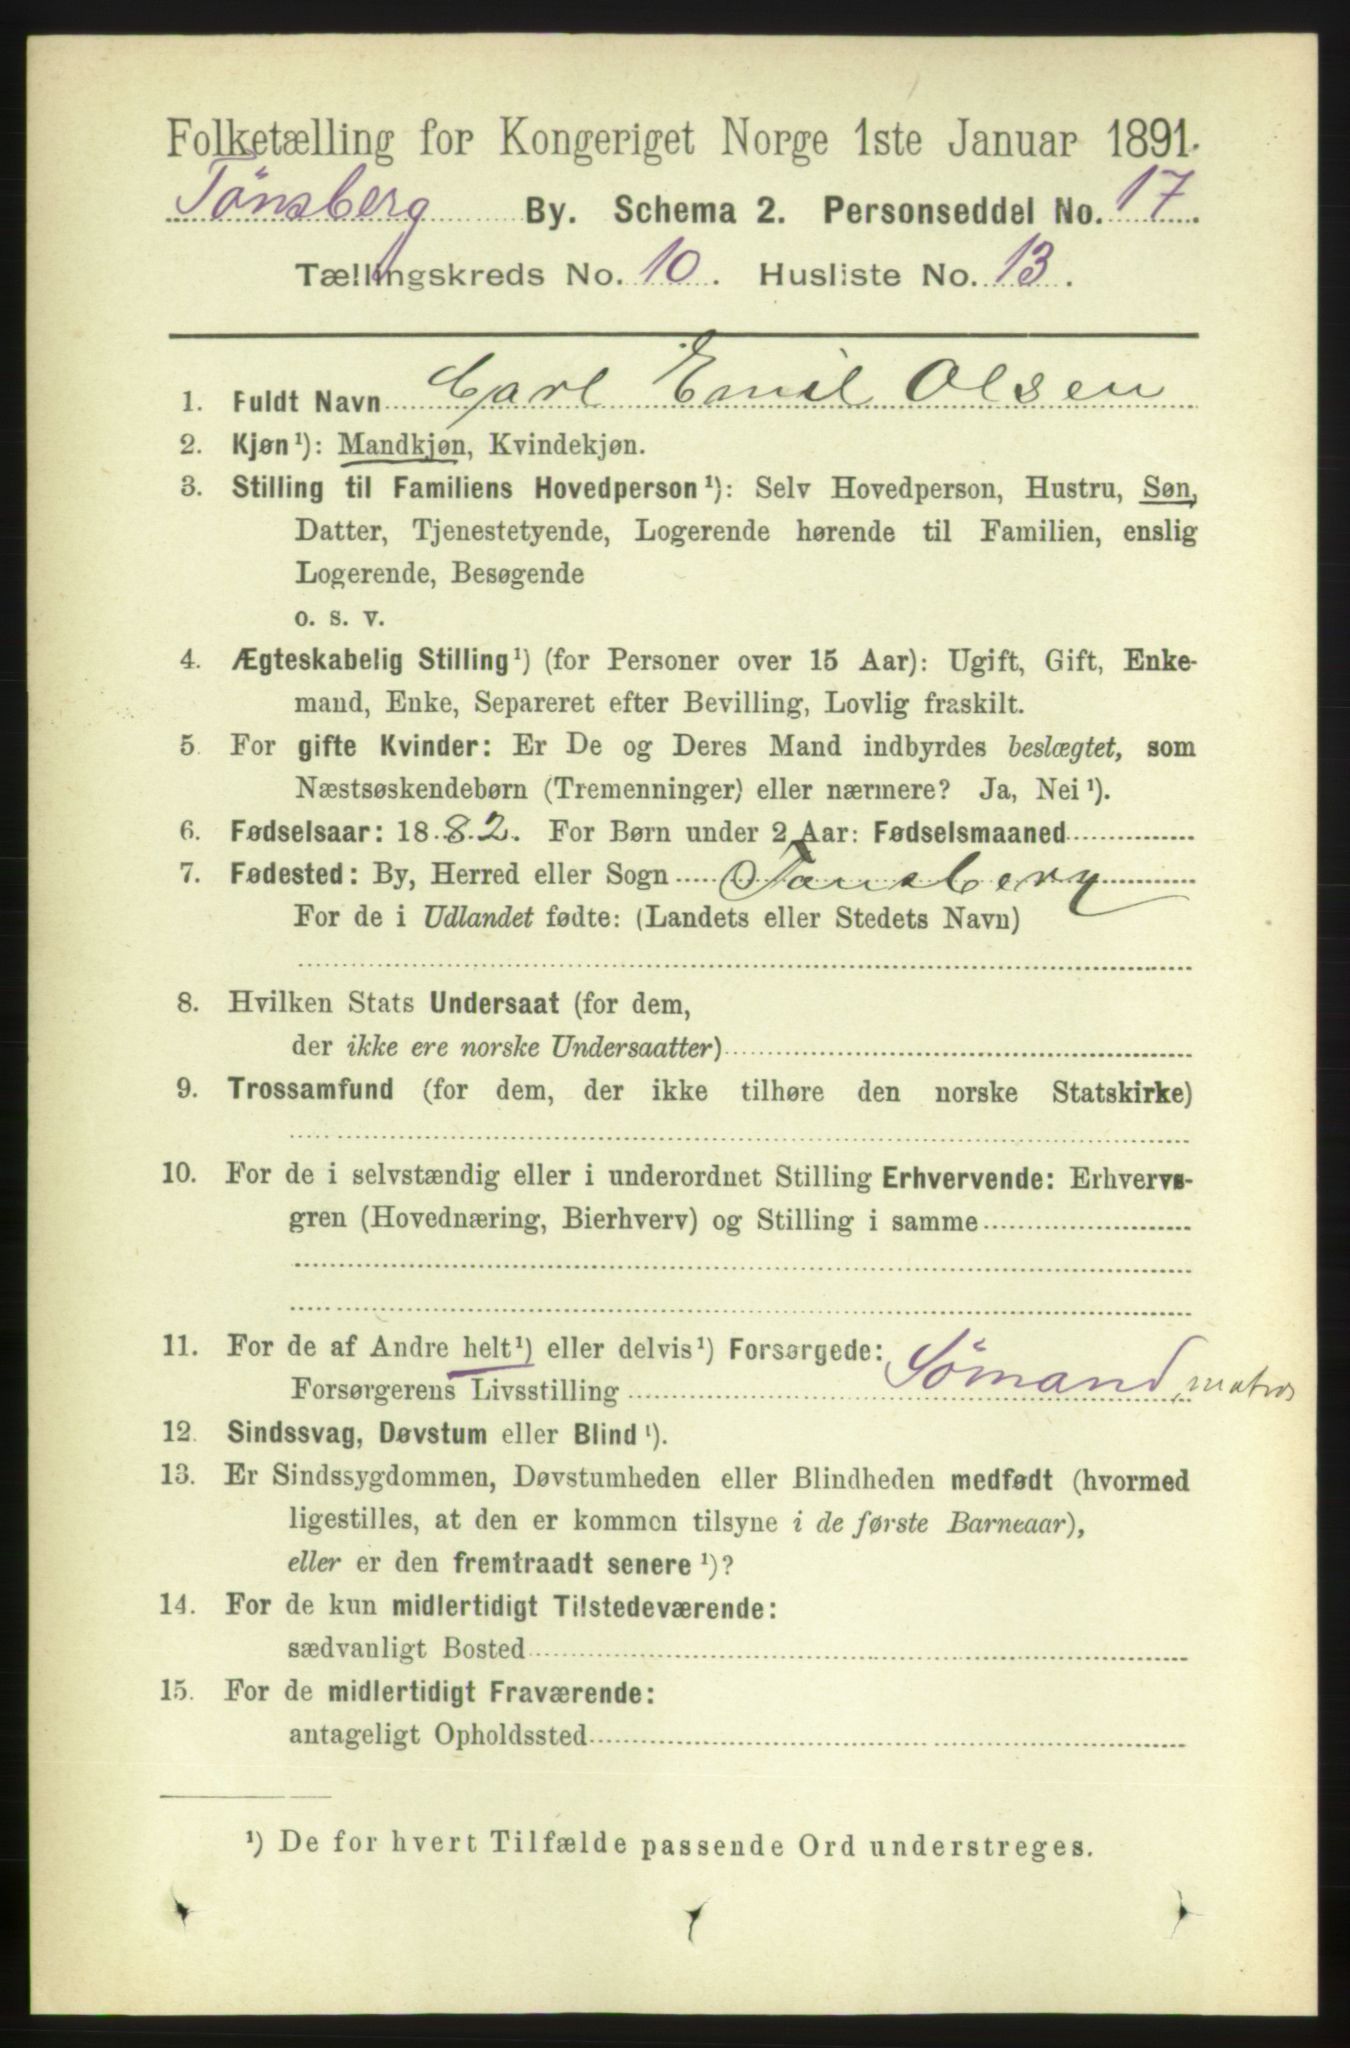 Folketælling for Kongeriget Norge 1ste Januar 1891.
Tönsberg By. Schema 2. Personseddel No. 17.
Tællingskreds No. 10. Husliste No. 13.
1. Fuldt Navn Carl Emil Olsen
2. Kjøn¹): Mandkjøn, Kvindekjøn.
3. Stilling til Familiens Hovedperson¹): Selv Hovedperson, Hustru, Søn,
Datter, Tjenestetyende, Logerende hørende til Familien, enslig
Logerende, Besøgende
o. s. v.
4. Ægteskabelig Stilling¹) (for Personer over 15 Aar): Ugift, Gift, Enke-
mand, Enke, Separeret efter Bevilling, Lovlig fraskilt.
5. For gifte Kvinder: Er De og Deres Mand indbyrdes beslægtet, som
Næstsøskendebørn (Tremenninger) eller nærmere? Ja, Nei¹).
6. Fødselsaar: 1882. For Børn under 2 Aar: Fødselsmaaned
7. Fødested: By, Herred eller Sogn Tønsberg
For de i Udlandet fødte: (Landets eller Stedets Navn)
8. Hvilken Stats Undersaat (for dem,
der ikke ere norske Undersaatter)
9. Trossamfund (for dem, der ikke tilhøre den norske Statskirke)
10. For de i selvstændig eller i underordnet Stilling Erhvervende: Erhvervs-
gren (Hovednæring, Bierhverv) og Stilling i samme
11. For de af Andre helt¹) eller delvis¹) Forsørgede:
Forsørgerens Livsstilling Sömand, matros
12. Sindssvag, Døvstum eller Blind¹).
13. Er Sindssygdommen, Døvstumheden eller Blindheden medfødt (hvormed
ligestilles, at den er kommen tilsyne i de første Barneaar),
eller er den fremtraadt senere¹)?
14. For de kun midlertidigt Tilstedeværende:
sædvanligt Bosted
15. For de midlertidigt Fraværende:
antageligt Opholdssted
¹) De for hvert Tilfælde passende Ord understreges.